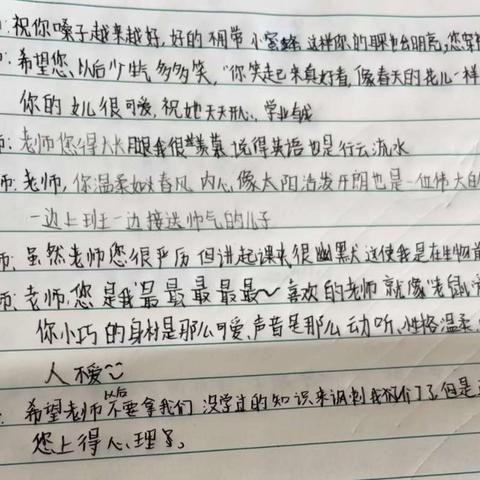 :祝你嗓子越来越好,好的不用带小蜜蜂 这样你的眼也台明亮,您穿
:希望您,以后少生气,多多笑,"你笑起来真好看,像春天的花儿一样
你的女儿很可爱,祝她天天开心,学业有成
师:老师您得人长腿我很羡慕说得英语也是行云流水
师:老师,你温柔如春风 内心像太阳活泼开朗也是一位伟大的
一边上班一边接送帅气的儿子
师:虽然老师您很严厉 但讲起课来很幽默这使我是在生物
师:老师,您是我最最最最最~喜欢的老师 就像老鼠
你小巧的身材是那么可爱,声音是那么动听,性格温柔,
人不爱~
:希望老师以后不要拿我们没学过的知识来讽刺我们了,但是
您上得心理了。